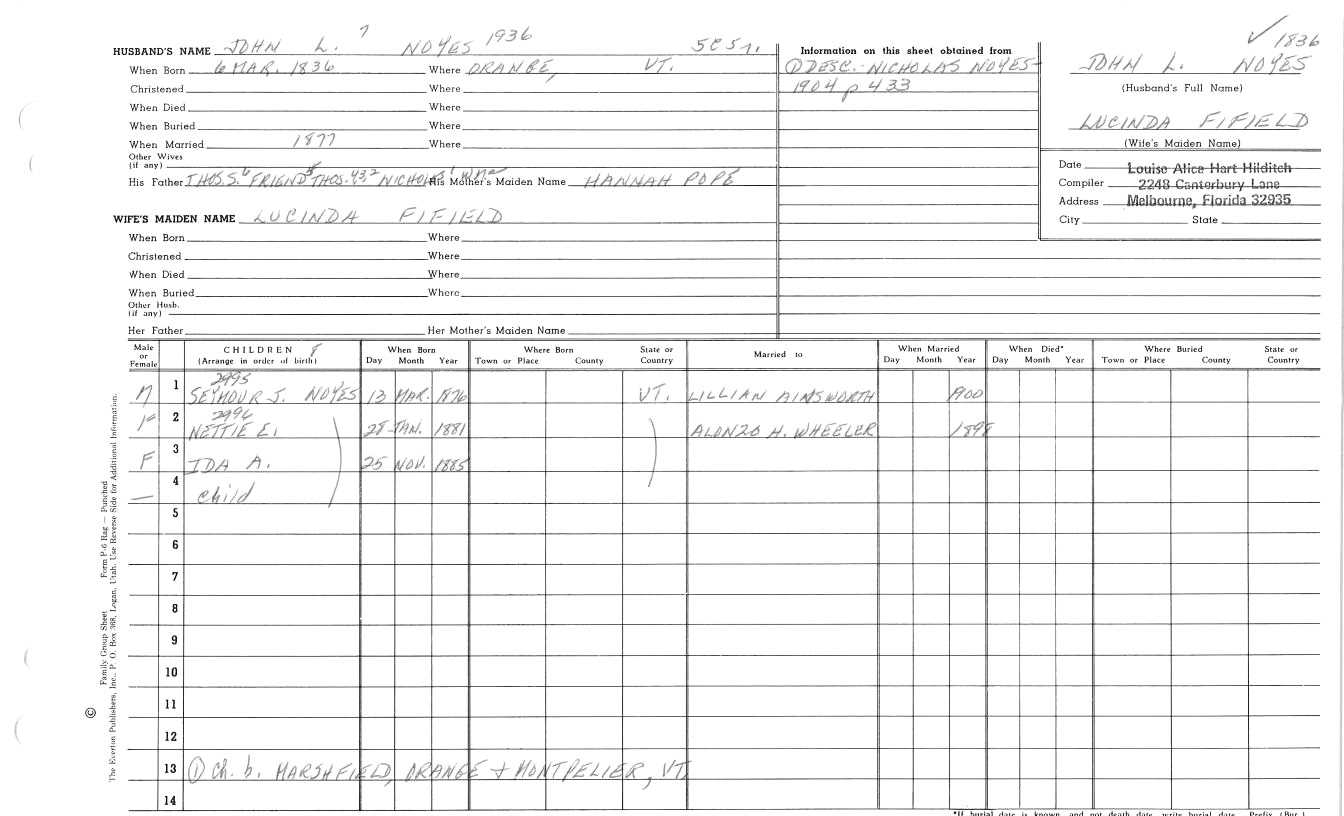 HUSBAND'S NAME JOHN L. 7 NOYES 1936 5C51.
When Born 6 MAR. 1836 Where ORANGE, VT.
Christened Where
When Died Where
When Buried Where
When Married 1877 Where
Other Wives
(if any)
His Father THOS. S.6 FRIEND5 THOS. 4,3,2 NICHOLAS1 Wm His Mother's Maiden Name HANNAH POPE
WIFE'S MAIDEN NAME LUCINDA FIFIELD
When Born Where
Christened Where
When Died Where
When Buried Where
Other Husb.
(if any)
Her Father Her Mother's Maiden Name
Information on this sheet obtained from
① DESC. - NICHOLAS NOYES -
1904 p 433
✓ 1836
JOHN L. NOYES
(Husband's Full Name)
LUCINDA FIFIELD
(Wife's Maiden Name)
Date Louise Alice Hart Hilditch
Compiler 2248 Canterbury Lane
Address Melbourne, Florida 32935
City State
Male or Female CHILDREN 8 (Arrange in order of birth) When Born Day Month Year Where Born Town or Place County State or Country Married to When Married Day Month Year When Died* Day Month Year Where Buried Town or Place County State or Country
2995
M 1 SEYMOUR J. NOYES 13 MAR. 1876 VT. LILLIAN AINSWORTH 1900
2996
F 2 NETTIE E. 28 JAN. 1881 ALONZO H. WHEELER 1898
F 3 IDA A. 25 NOV. 1885
— 4 child
5
6
7
8
9
10
11
12
13 ① Ch. b. MARSHFIELD, ORANGE + MONTPELIER, VT.
14
*If burial date is known, and not death date, write burial date. Prefix (Bur.)
© Family Group Sheet Form P-6 Rag — Punched
The Everton Publishers, Inc., P. O. Box 368, Logan, Utah. Use Reverse Side for Additional Information.